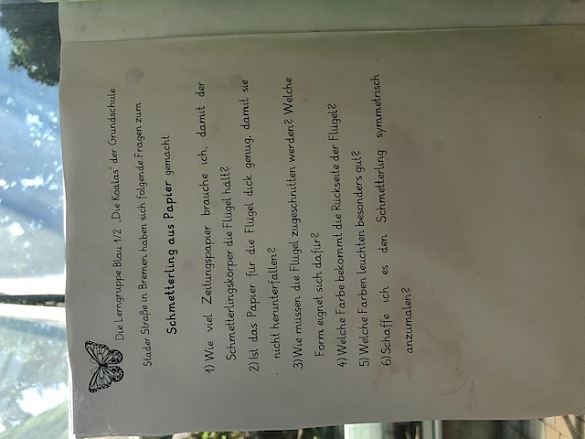 Die Lerngruppe Blau 1/2 „Die Koalas" der Grundschule
Stader Straße in Bremen haben sich folgende Fragen zum
Schmetterling aus Papier gemacht:
1) Wie viel Zeitungspapier brauche ich, damit der
Schmetterlingskörper die Flügel hält?
2) Ist das Papier für die Flügel dick genug, damit sie
nicht herunterfallen?
3) Wie müssen die Flügel zugeschnitten werden? Welche
Form eignet sich dafür?
4) Welche Farbe bekommt die Rückseite der Flügel?
5) Welche Farben leuchten besonders gut?
6) Schaffe ich es den Schmetterling symmetrisch
anzumalen?